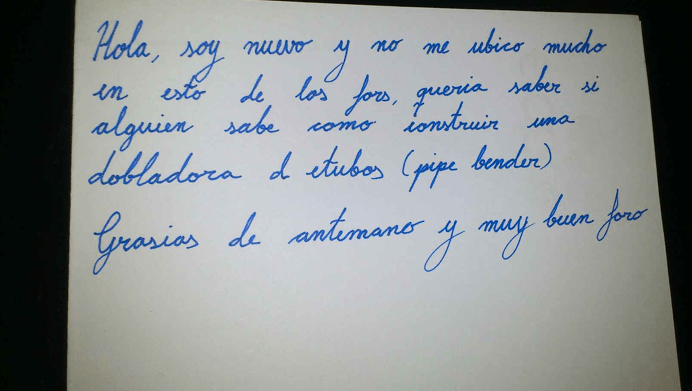 Hola, soy nuevo y no me ubico mucho
en esto de los fors, queria saber si
alguien sabe como construir una
dobladora d etubos (pipe bender)
Grasias de antemano y muy buen foro